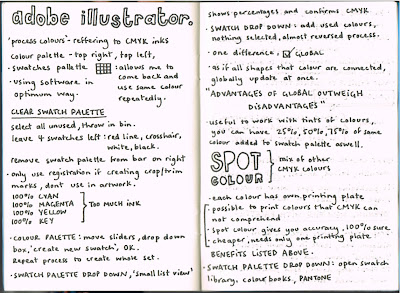 adobe illustrator.
'process colours' - reffering to CMYK inks
Colour palette - top right, top left,
- swatches palette : allows me to
come back and
· Using software in use same colour
optimum way. repeatedly.
CLEAR SWATCH PALETTE
select all unused, throw in bin.
leave 4 swatches left: red line, crosshair,
white, black.
remove swatch palette from bar on right
· only use registration if creating crop/trim
marks, dont use in artwork.
100% CYAN
100% MAGENTA
100% YELLOW
100% KEY
TOO MUCH INK
· COLOUR PALETTE: move sliders, drop down
box, 'create new swatch', OK.
Repeat process to create whole set.
· SWATCH PALETTE DROP DOWN, 'small list view'
shows percentages and confirms CMYK
· SWATCH DROP DOWN: add used colours,
nothing selected, almost reversed process.
· one difference, GLOBAL
· as if all shapes that colour are connected,
globally update at once.
"ADVANTAGES OF GLOBAL OUTWEIGH
DISADVANTAGES"
· useful to work with tints of colours,
you can have 25%, 50%, 75% of same
colour added to swatch palette aswell.
SPOT
COLOUR
mix of other
CMYK colours
· each colour has own printing plate
· possible to print colours that CMYK can
not comprehend
· Spot colour gives you accuracy, 100% sure
cheaper, needs only one printing plate
BENEFITS LISTED ABOVE.
· SWATCH PALETTE DROP DOWN: open swatch
library. colour books, PANTONE